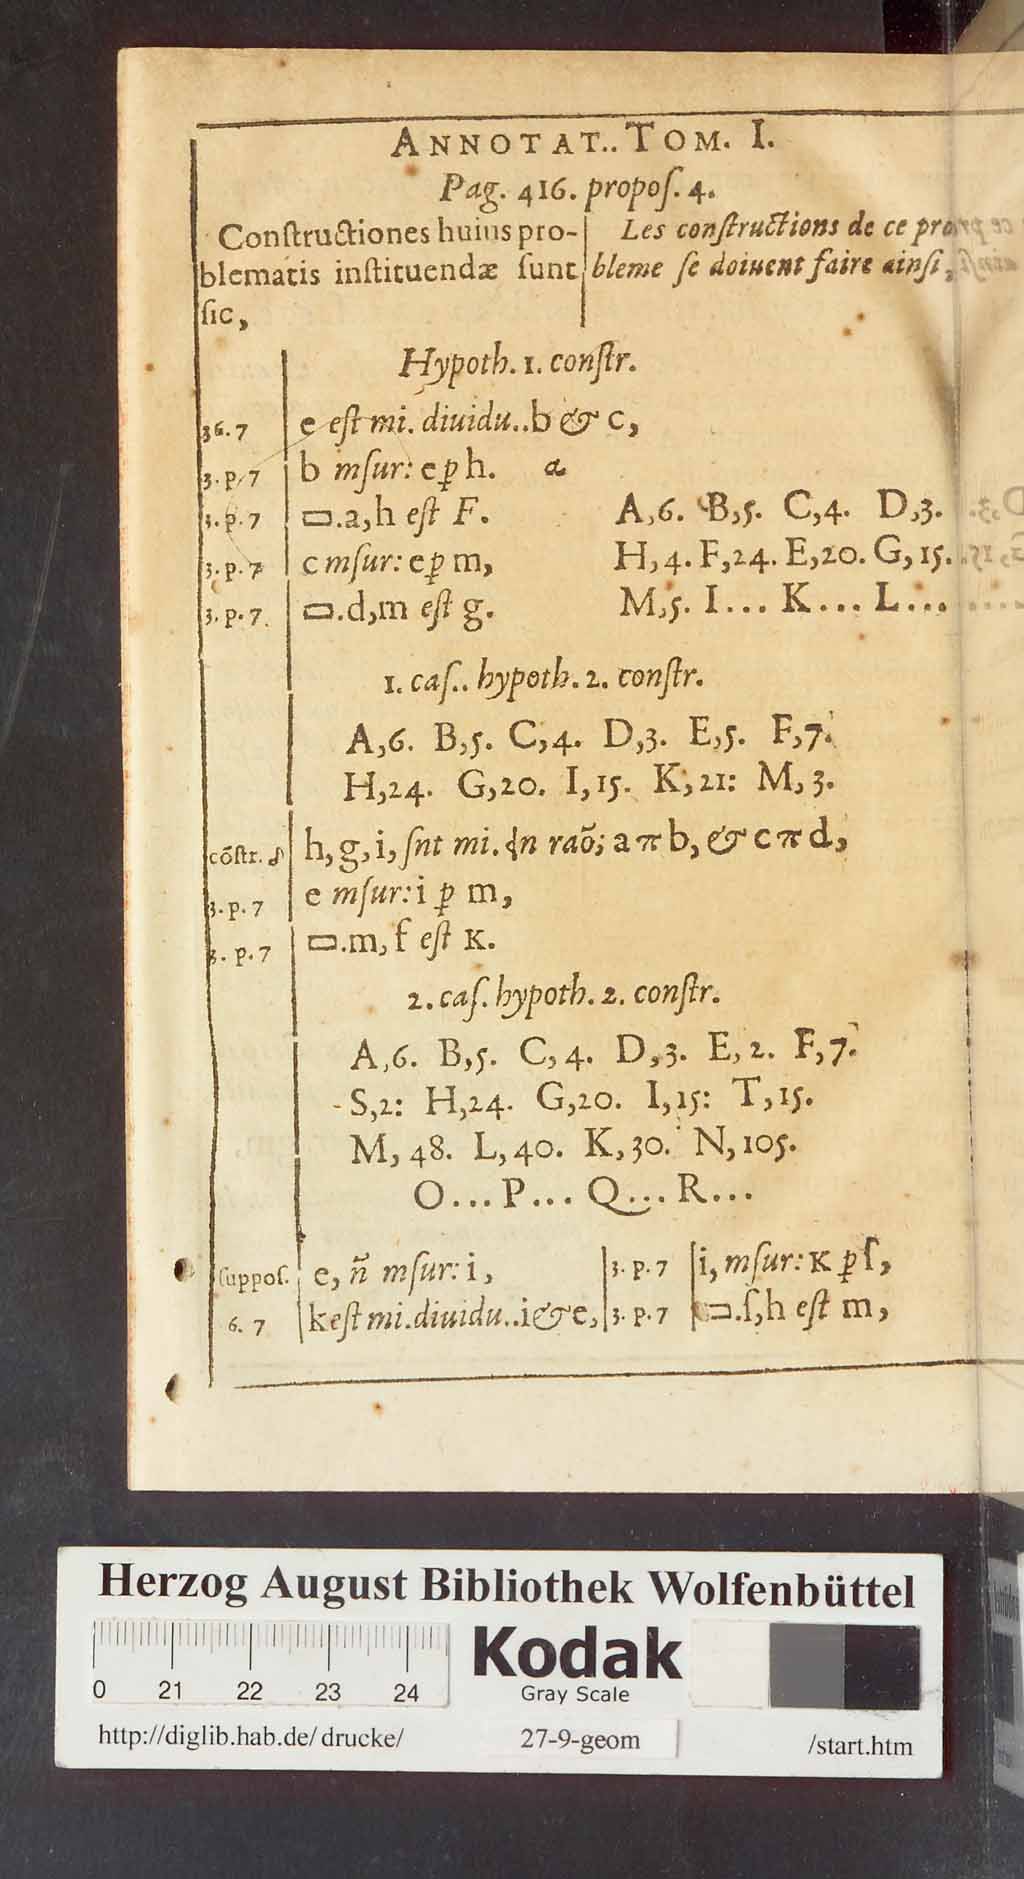 ANNOTAT.. TOM. I.
Pag. 416. propoſ. 4.
Conſtructiones huius pro-
blematis inſtituendæ ſunt
ſic,
Les conſtructions de ce pro
bleme ſe doiuent faire ainſi,
Hypoth. 1. conſtr.
36. 7 e eſt mi. diuidu..b & c,
3. p. 7 b mſur: e ꝑ h. a
3. p. 7 ▭.a,h eſt F. A,6. B,5. C,4. D,3.
3. p. 7 c mſur: e ꝑ m, H,4. F,24. E,20. G,15.
3. p. 7. ▭.d,m eſt g. M,5. I... K... L...
1. caſ.. hypoth. 2. conſtr.
A,6. B,5. C,4. D,3. E,5. F,7.
H,24. G,20. I,15. K,21: M,3.
cõſtr. h,g,i, ſnt mi. in raõ; a π b, & c π d,
3. p. 7 e mſur: i ꝑ m,
3. p. 7 ▭.m,f eſt K.
2. caſ. hypoth. 2. conſtr.
A,6. B,5. C,4. D,3. E,2. F,7.
S,2: H,24. G,20. I,15: T,15.
M,48. L,40. K,30. N,105.
O... P... Q... R...
ſuppoſ. e, ñ mſur: i, 3. p. 7 i, mſur: K ꝑ ſ,
6. 7 k eſt mi. diuidu..i & e, 3. p. 7 ▭.ſ,h eſt m,
Herzog August Bibliothek Wolfenbüttel
Kodak
Gray Scale
0 21 22 23 24
http://diglib.hab.de/drucke/ 27-9-geom /start.htm